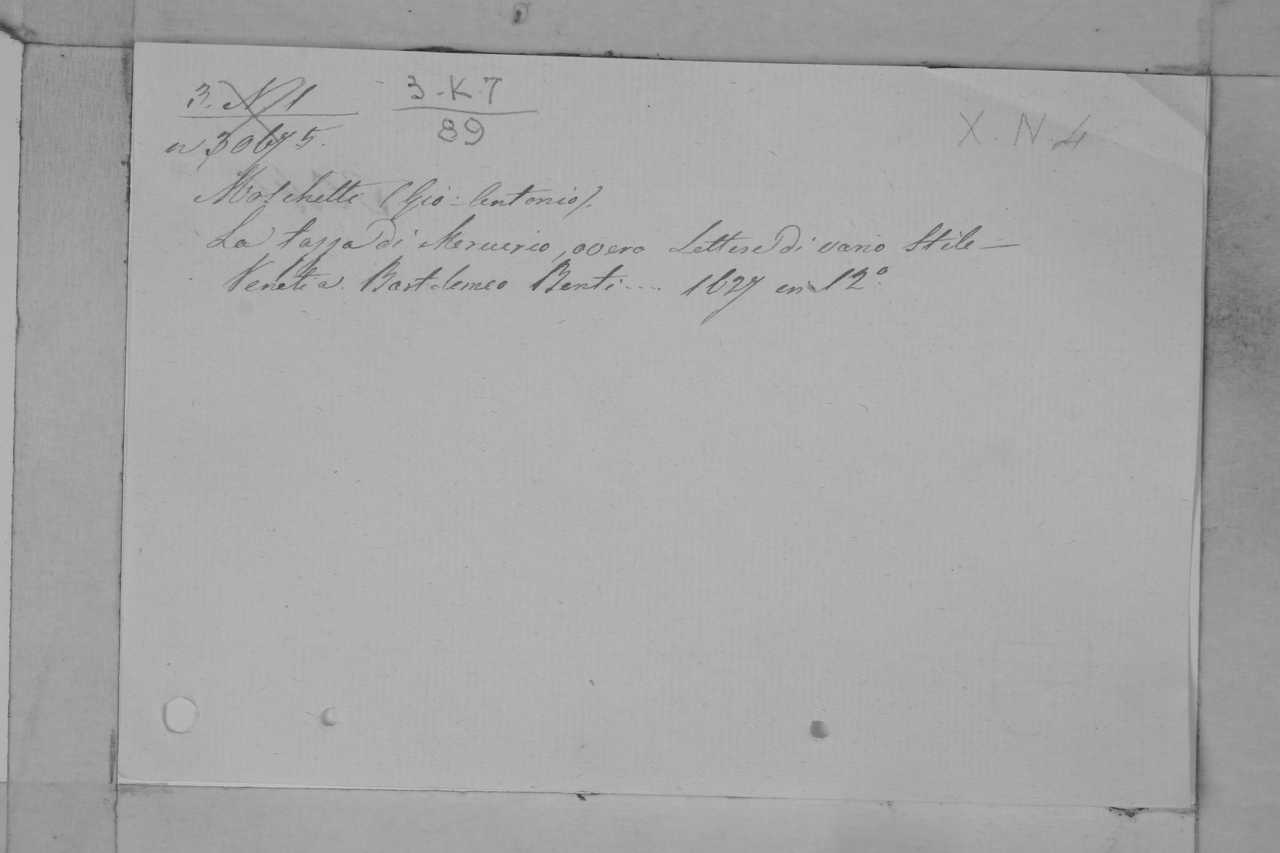 3. N 1
n 30675.
3-K-7
89
X. N. 4
Moschetti (Gio: Antonio).
La tazza di Mercurio, overo Lettere di vario Stile —
Venetia Bartolomeo Benti .... 1627 in 12°.